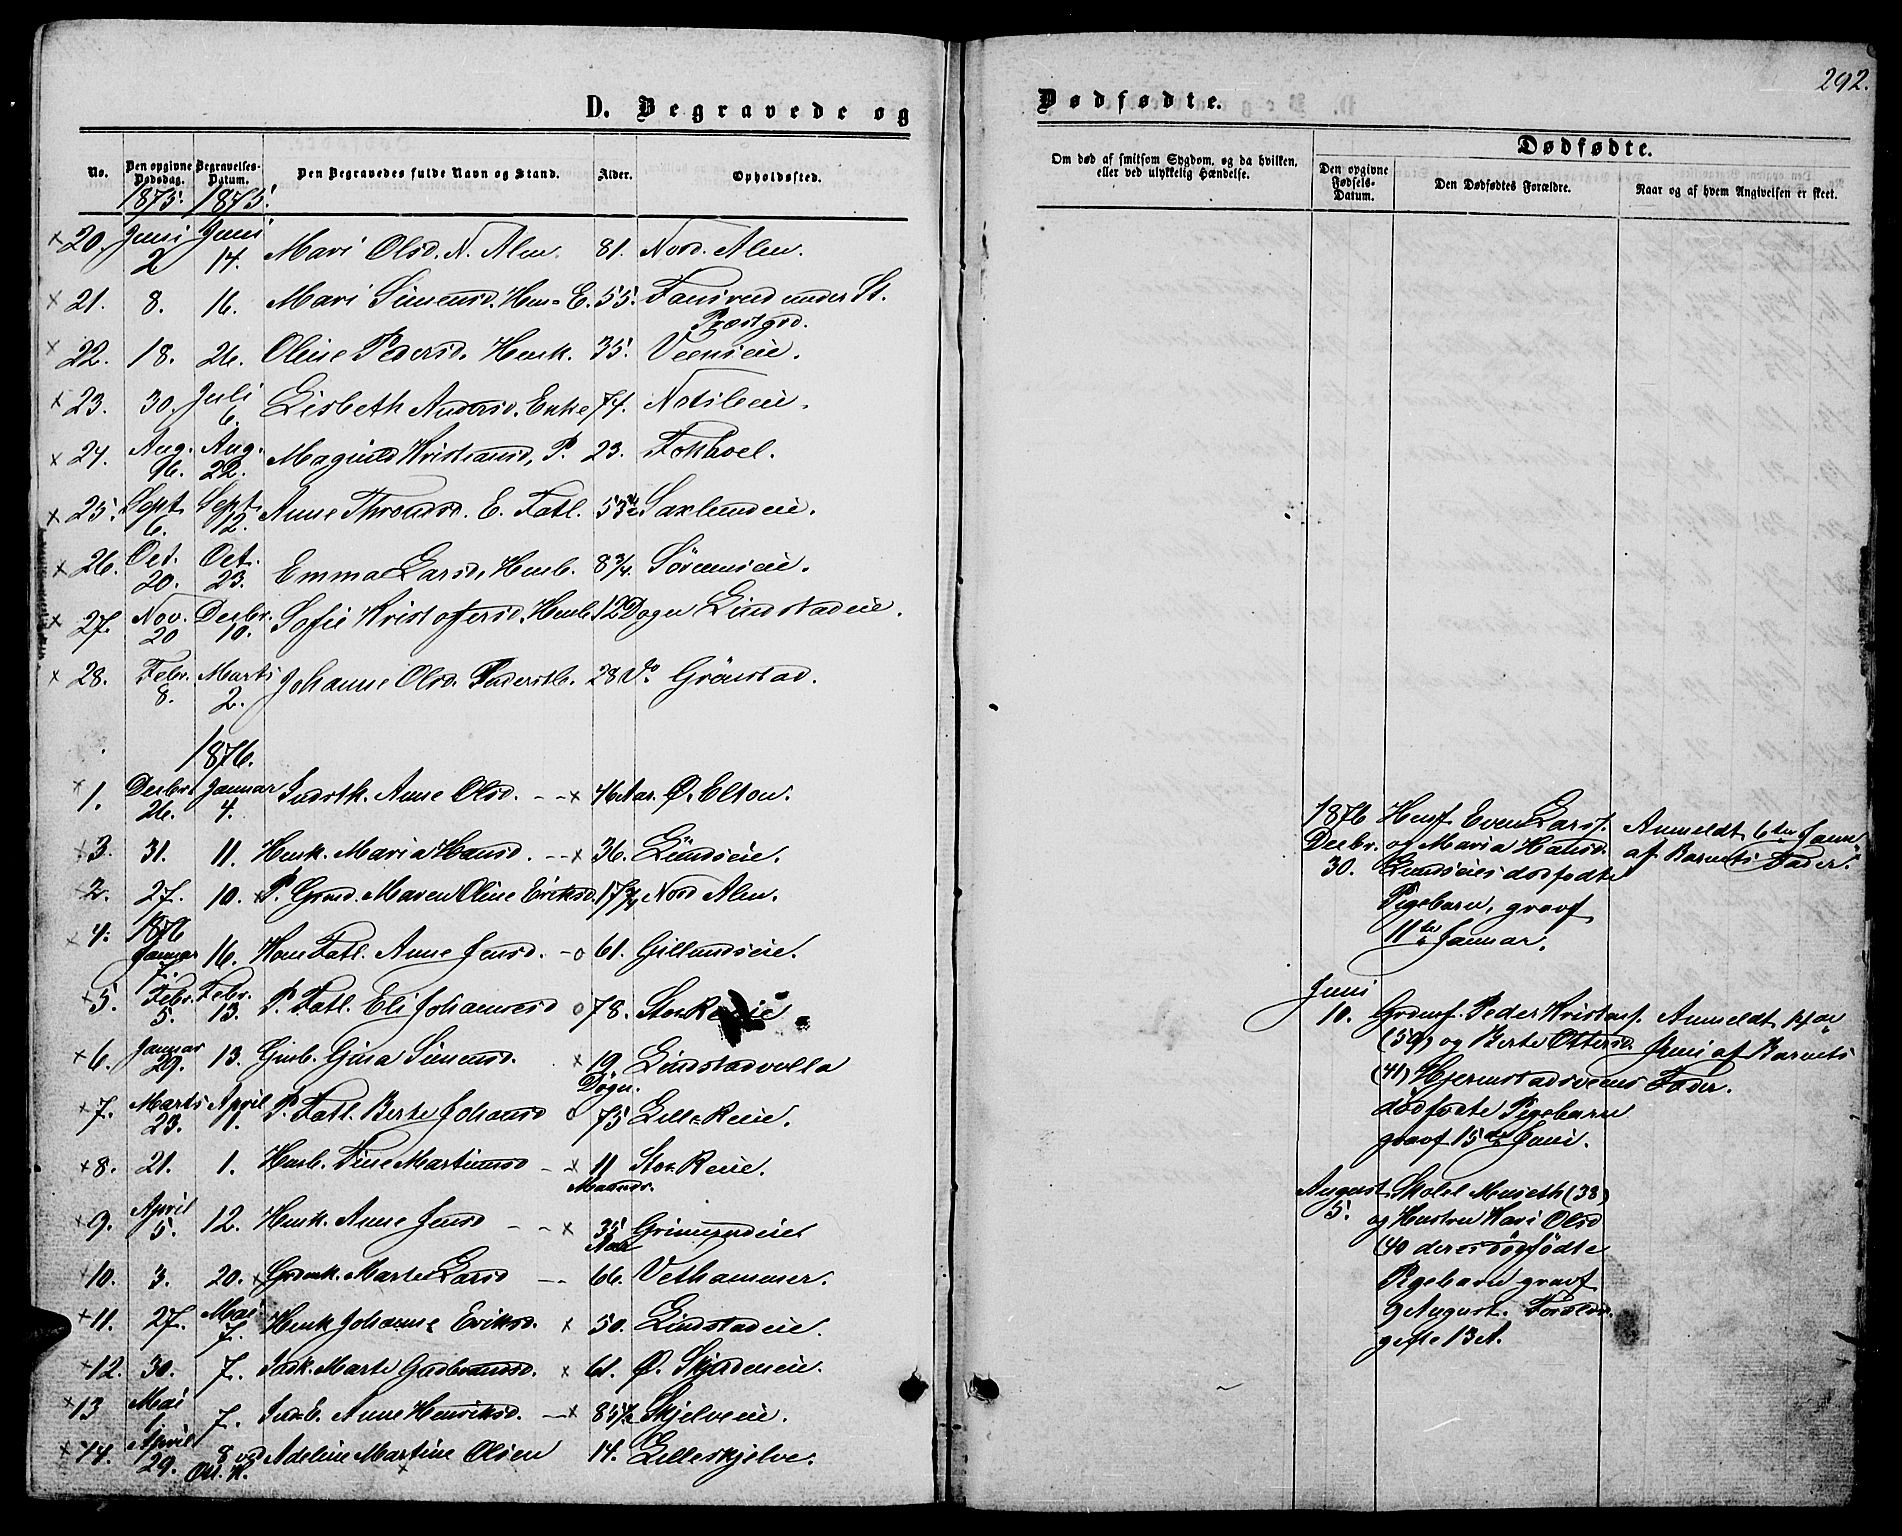 D. Begravede og
No.
Den opgivne Dødsdag.
Begravelses-Datum.
Den Begravedes fulde Navn og Stand.
Alder.
Opholdssted.
1875. 1875.
× 20. Juni 2 Juni 14. Mari Olsd. N. Alm. 81. Nord. Alm.
× 21. 8. 16. Mari Simensd. Hus-E. 55. under St. Præstgrd.
× 22. 18. 26. Oline Pedersd. Husk. 35.
× 23. 30. Juli 6. Lisbeth Andersd. Enke 74.
× 24. Aug. 16. Aug. 22. Kristiansd. P. 23. Fokhoel.
× 25. Sept. 6. Sept. 12. Anne Throndsd. E. Fatl. 53 Saxlundeie.
× 26. Oct. 20. Oct. 23. Emma Larsd. Husb. 8 3/4.
× 27. Nov. 20 Decbr. 10. Sofie Kristofersd. Husb 12 Dogn Lindstadeie.
× 28. Febr. 8. Marts 2. Johanne Olsd. 28 Do Grönstad.
1876.
× 1. Decbr. 26. Januar 4. Indstk. Anne Olsd. - -× 46 Aar. Ø. Elton.
× 3. 31. 11. Husk. Maria Hansd. - -× 36. Lundseie.
2. 27. 10. × P. Grmd. Maren Oline Eriksd. 17 3/4 Nord Alm.
× 4. 1876 Januar 7. 16. Kone Fatl. Anne Jensd. -o 61. Gillundseie.
× 5. Febr. 5. Febr. 13. P. Fatl. Eli Johannesd o 78. Stor Reeie
× 6. Januar 29. 13. Gina Simensd. × 19 Døgn. Lindstadvolla
× 7. Marts 23. April 1. P. Fatl. Berte Johansd o 75 Lille-Reeie.
× 8. 21. 1. Husb. Tine Martinusd - × 11 Maaneder. Stor Reeie.
× 9. April 5. 12. Husk. Anne Jensd - - × 35 Aar
× 10. 3. 20. × Grdmk. Marte Larsd -- 66. Vethammer.
× 11. 27. Mai 7. Husk Johanne Eriksd. × 50. Lindstadeie.
× 12. 30. 7. Indk. Marte Gudbrandsd. × 61. Ø. Skjadeneie.
× 13 Mai 1 7. Ind-E. Anne Henriksd. -× 85 1/2 Skjelveeie.
× 14. April 29. 8 Adeline Martine Olsen × 14. Lilleskjelve.
292.
Dødfødte.
Om død af smitsom Sygdom, og da hvilken,
eller ved ulykkelig Hændelse.
Dødfødte.
Den opgivne Fødsels-Datum.
Den Dødfødtes Forældre.
Naar og af hvem Angivelsen er skeet.
1876
Decbr. 30.
Husf. Even Larsf.
og Maria Hansd.
Lundseies dødfødte
Pigebarn, gravf
11te Januar.
Anmeldt 6te Januar
af Barnets Fader.
Juni 10.
Grdmf. Peder Kristiansf.
(59) og Berte Ottersd.
(41) Hjernstadsveens
dødfødte Pigebarn
gravf 15de Juni.
Anmeldt 14de
Juni af Barnets
Fader.
August 5.
Skolel Museth (38)
og Hustru Kari Olsd
(40 deres dögfödte
Pigebarn gravf
9 August. Foreldr.
gifte 13 A.